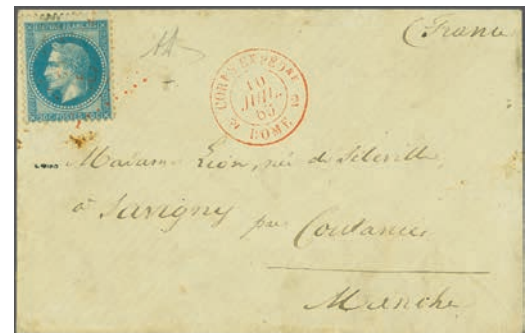 (France
CORPS EXPED. RY
10
JUIL.
ROME 2
Madame Léon, née de
à Savigny par Coutances
Manche